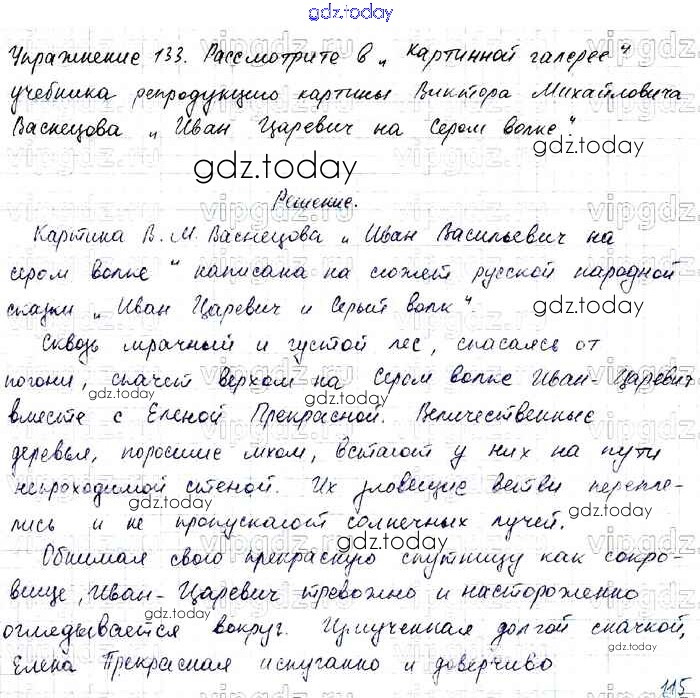 gdz.today
Упражнение 133. Рассмотрите в „Картинной галерее“
учебника репродукцию картины Виктора Михайловича
Васнецова „Иван Царевич на Сером волке“
gdz.today
gdz.today
Решение.
Картина В. М. Васнецова „Иван Васильевич на
сером волке“ написана на сюжет русской народной
сказки „Иван Царевич и Серый волк“.
gdz.today
gdz.today
Сквозь мрачный и густой лес, спасаясь от
погони, скачет верхом на Сером волке Иван-Царевич
gdz.today
gdz.today
вместе с Еленой Прекрасной. Величественные
деревья, поросшие мхом, встают у них на пути
непроходимой стеной. Их зловещие ветви перепле-
gdz.today
лись и не пропускают солнечных лучей.
gdz.today
Обнимая свою прекрасную спутницу как сокро-
вище, Иван-Царевич тревожно и настороженно
gdz.today
оглядывается вокруг. Измученная долгой скачкой,
gdz.today
Елена Прекрасная испуганно и доверчиво
115